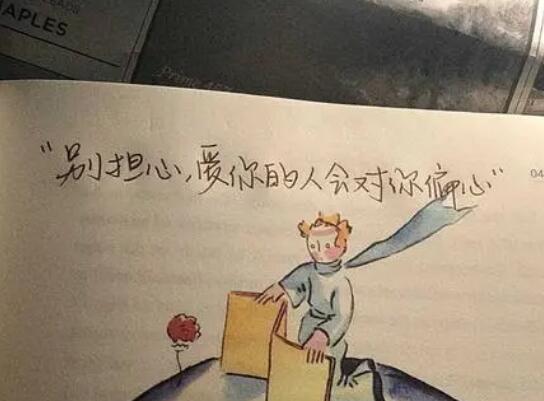 APLES
“别担心，爱你的人会对你偏心”
04